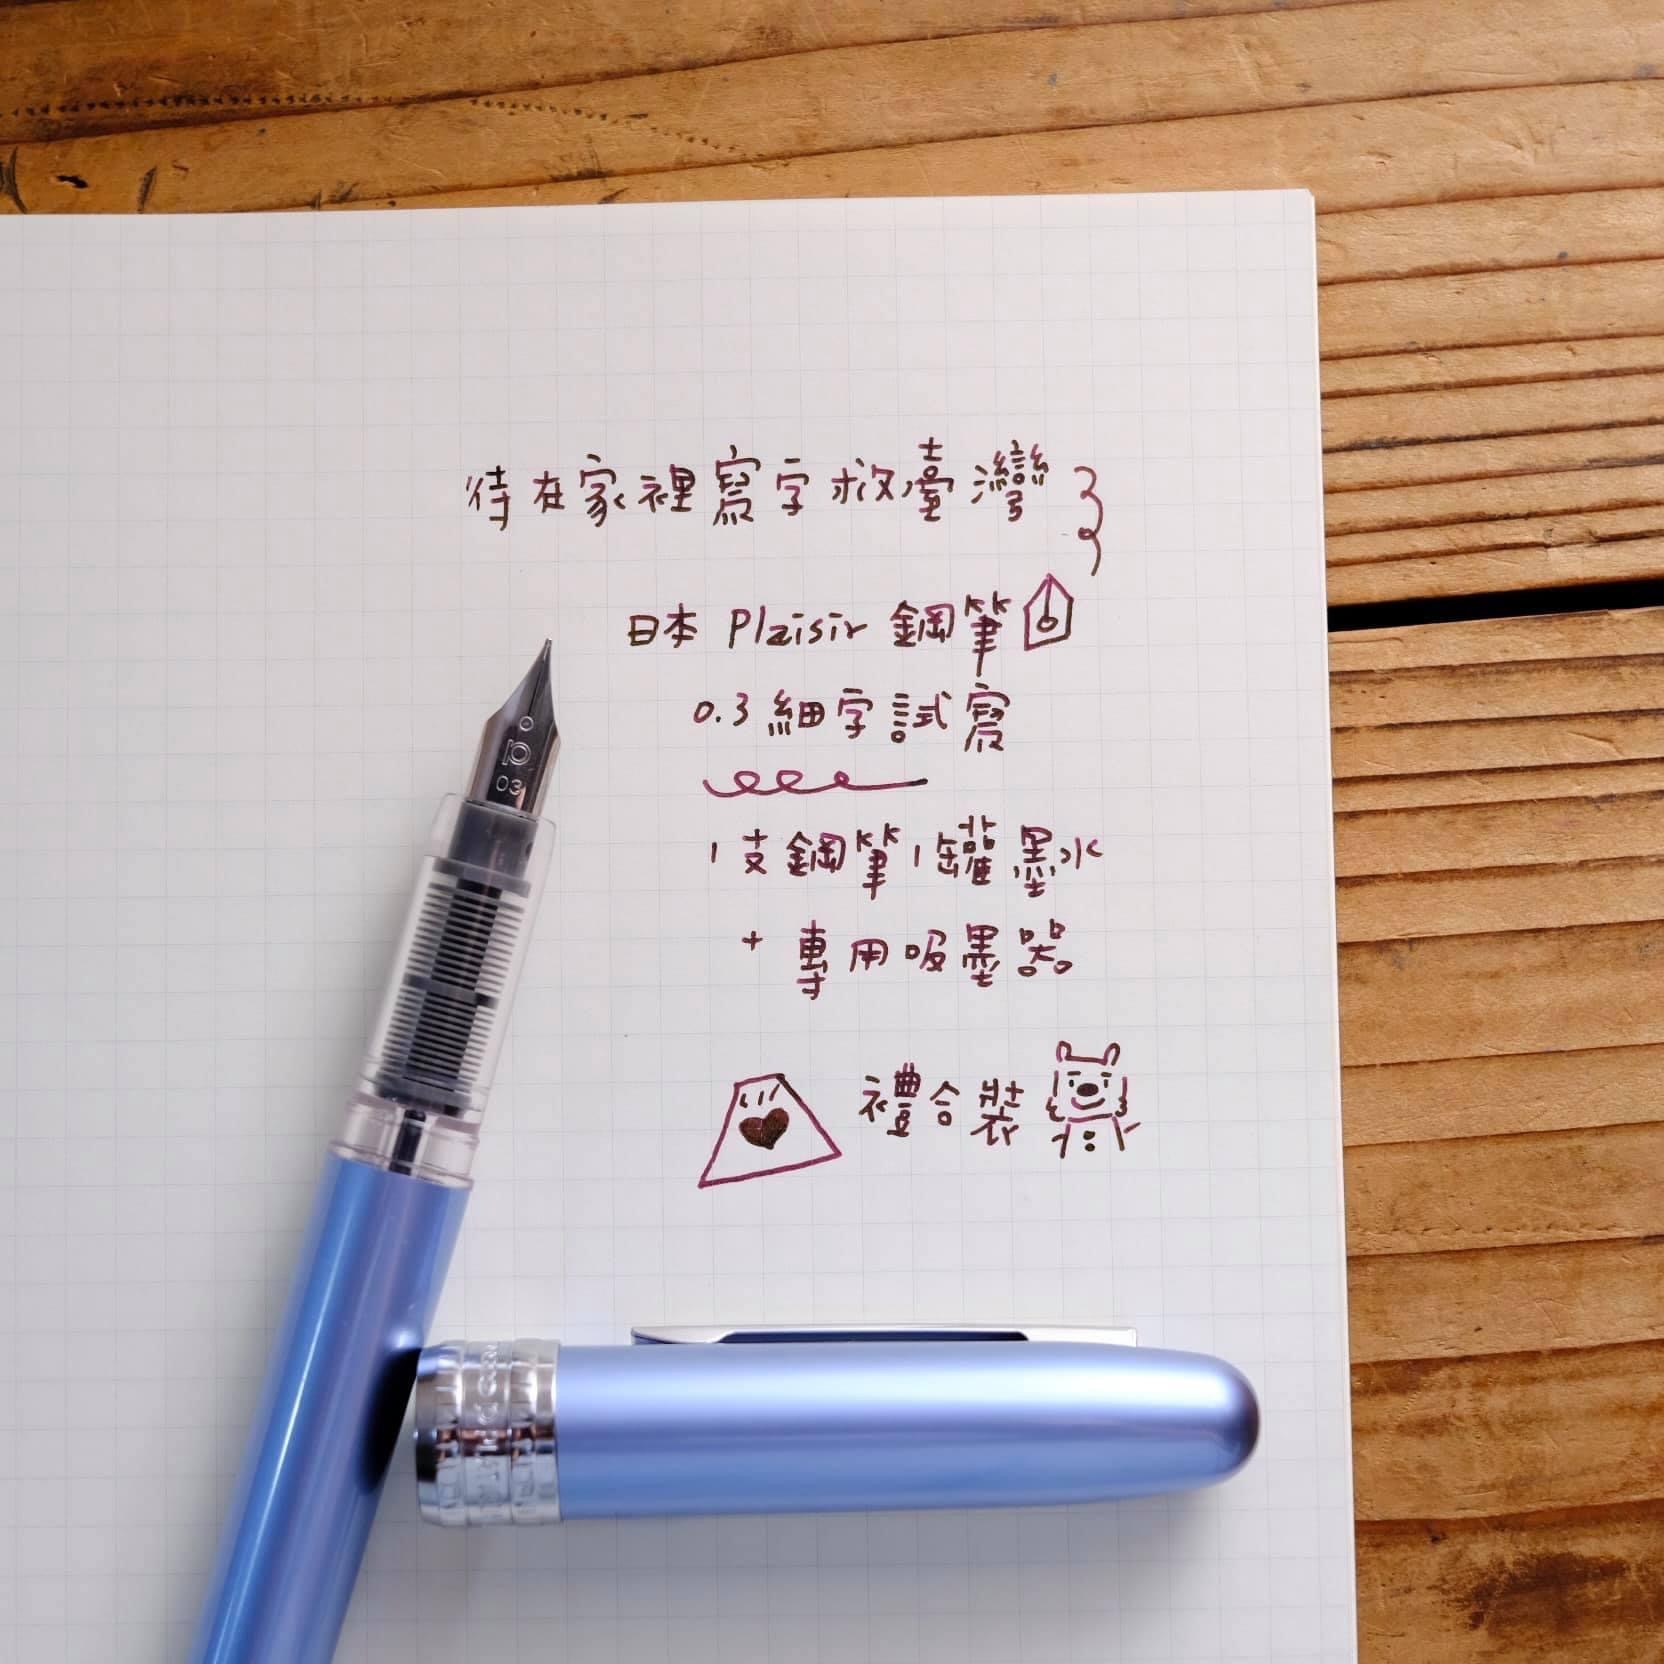 待在家裡寫字救臺灣
日本 Plaisir 鋼筆
0.3 細字試寫
1支鋼筆1罐墨水
+ 專用吸墨器
禮合裝
03